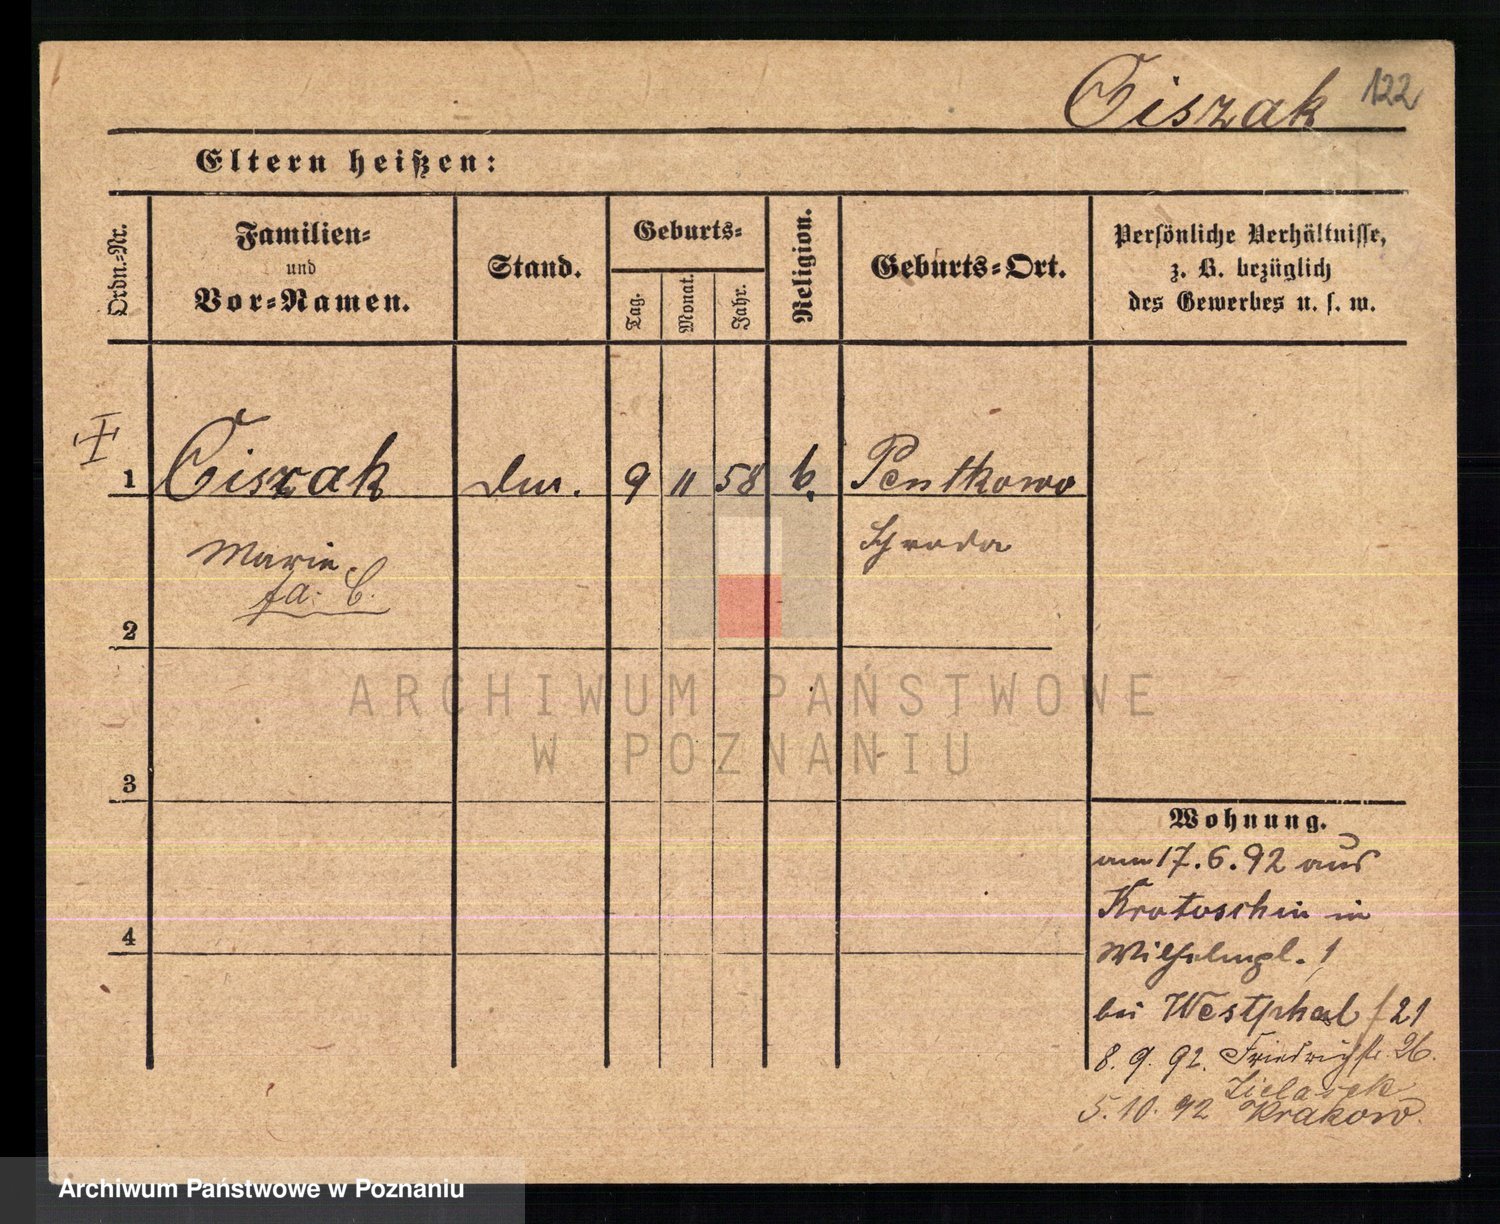 Ciszak 122
Eltern heißen:
Ordn.-Nr.
Familien-
und
Vor-Namen.
Stand.
Geburts-
Tag.
Monat.
Jahr.
Religion.
Geburts-Ort.
Persönliche Verhältnisse,
z. B. bezüglich
des Gewerbes u. s. w.
1 Ciszak 9 11 58 k. Pentkowo
Marie Schroda
2
3
4
Wohnung.
am 17.6.92 aus
Krotoschin in
Wilhelmpl. 1
bei Westphal /21
8. 9. 92. Friedrichstr. 26.
Zielasek
5. 10. 92 Krakow
ARCHIWUM PAŃSTWOWE
W POZNANIU
Archiwum Państwowe w Poznaniu